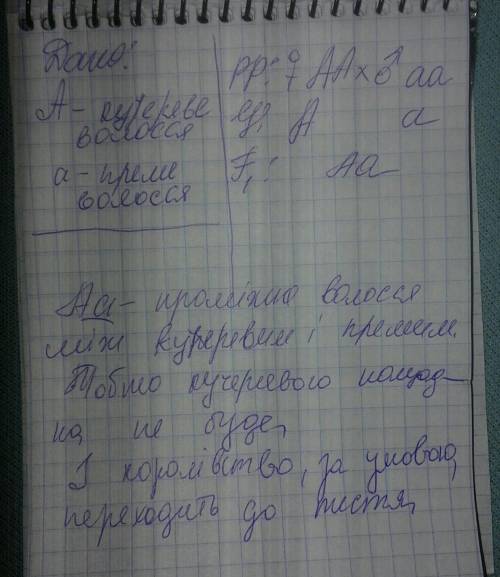 Дано:
А - кучеряве
волосся
а - пряме
волосся
PP: ♀ AA × ♂ aa
G: A a
F₁: Aa
Аа - проміжне волосся
між кучерявим і прямим.
Тобто кучерявого нащад-
ка не буде,
І королівство, за умовою,
переходить до тистя,